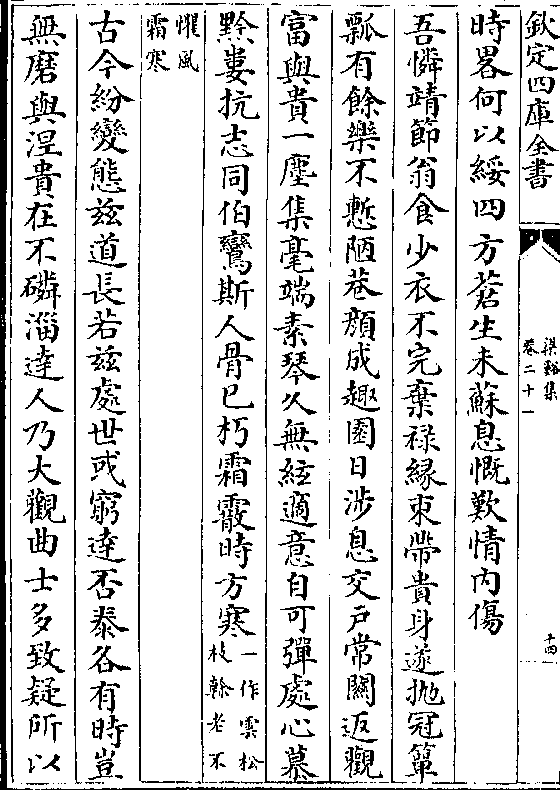 欽定四庫全書
梁谿集
卷二十一
十四
時畧何以綏四方蒼生未蘇息慨歎情内傷
吾憐靖節翁食少衣不完棄禄縁束帶貴身遂抛冠簞
瓢有餘樂不慙陋巷顔成趣園日涉息交戸常關返觀
富與貴一塵集毫端素琴久無絃適意自可彈處心慕
黔婁抗志同伯鸞斯人骨已朽霜霰時方寒一作雲松
枝幹老不
懼風
霜寒
古今紛變態兹道長若兹處世或窮達否泰各有時豈
無磨與湼貴在不磷淄達人乃大觀曲士多致疑所以